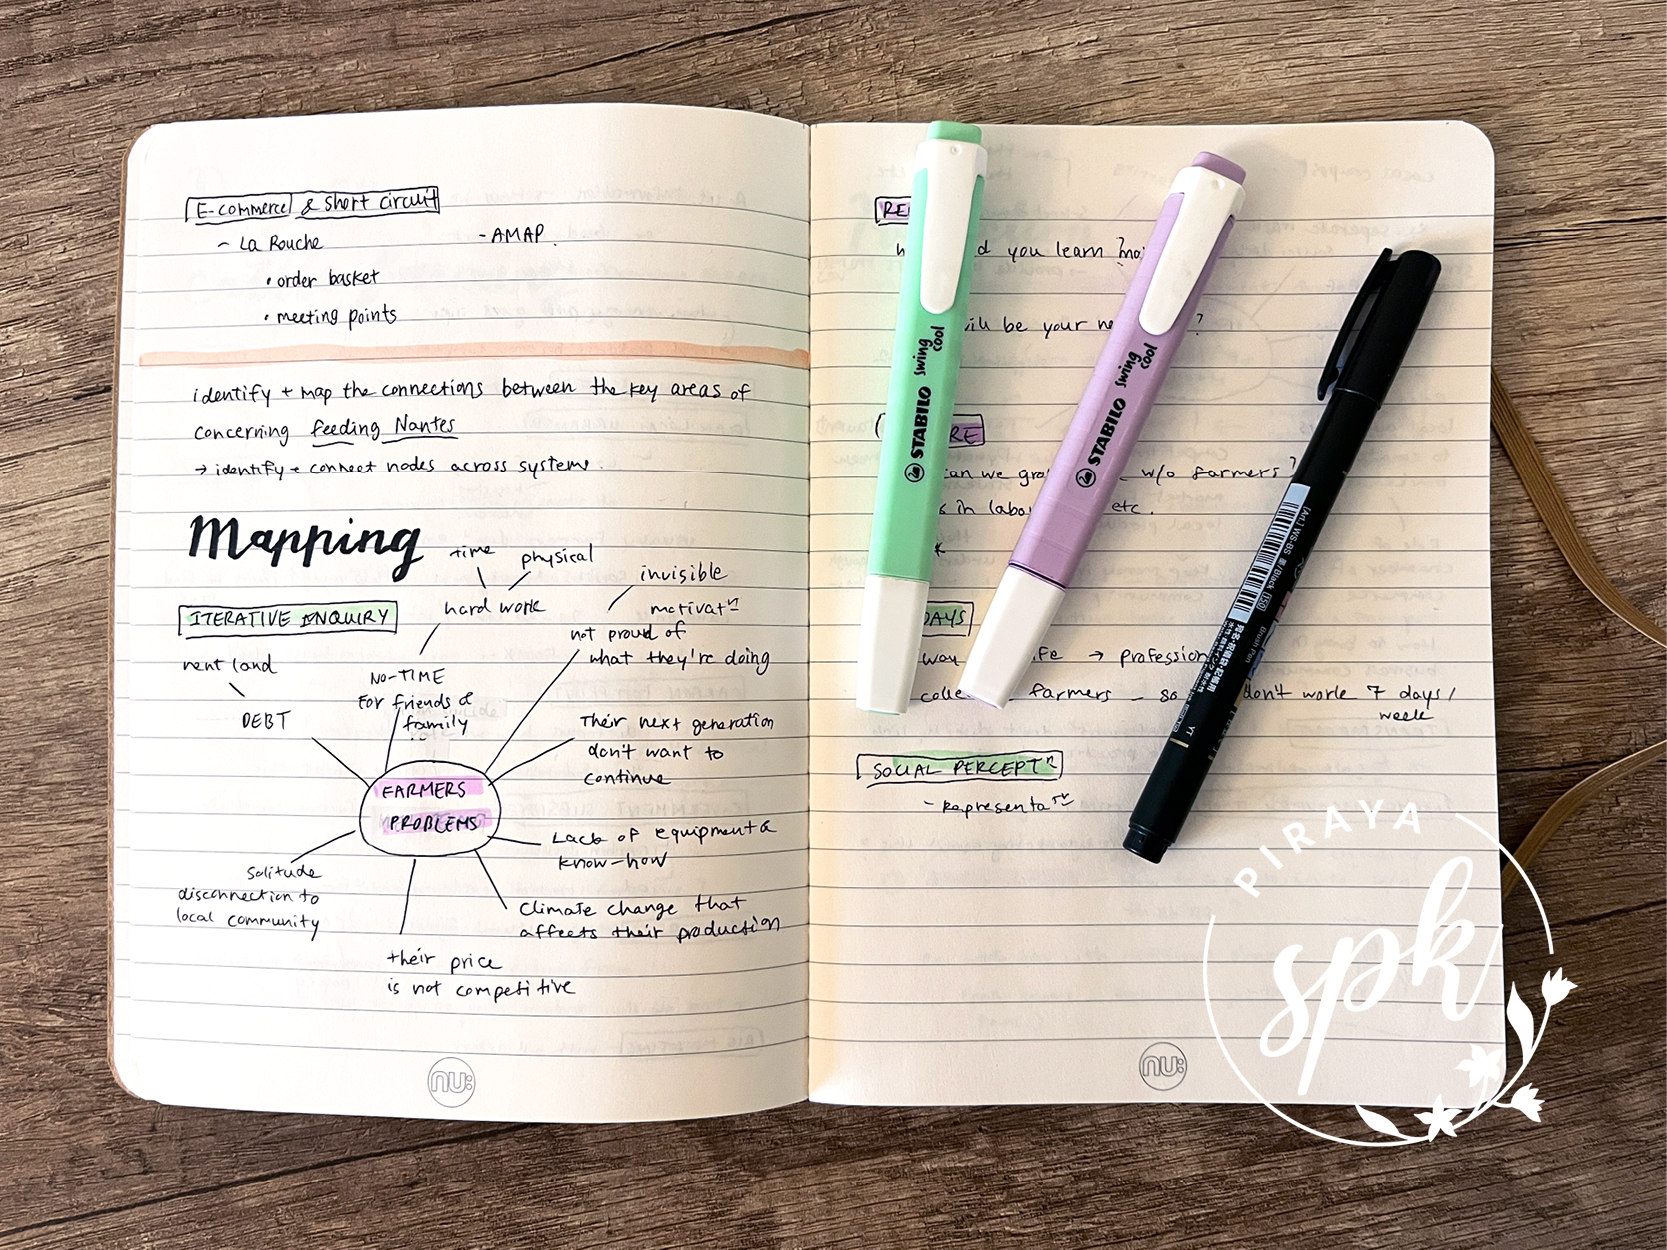 E-commerce & short circuit
- La Rouche
- AMAP.
• order basket
• meeting points
identify + map the connections between the key areas of
concerning feeding Nantes
→ identify + connect nodes across systems.
Mapping
ITERATIVE ENQUIRY
time
physical
hard work
invisible
motivatⁿ
not proud of
what they're doing
rent land
DEBT
NO-TIME
For friends &
family
Their next generation
don't want to
continue
FARMERS
PROBLEMS
Lack of equipment &
know-how
Solitude
disconnection to
local community
Climate change that
affects their production
their price
is not competitive
nu:
you learn
be your
?
RE
can we w/o farmers?
in etc.
DAYS
way → profession
farmers - so don't work 7 days/
week
SOCIAL PERCEPTⁿ
- Representaⁿ
nu:
STABILO swing cool
STABILO swing cool
(Art.) WS-BS 黒/Black (150)
Brush Pen
YT
PIRAYA
spk